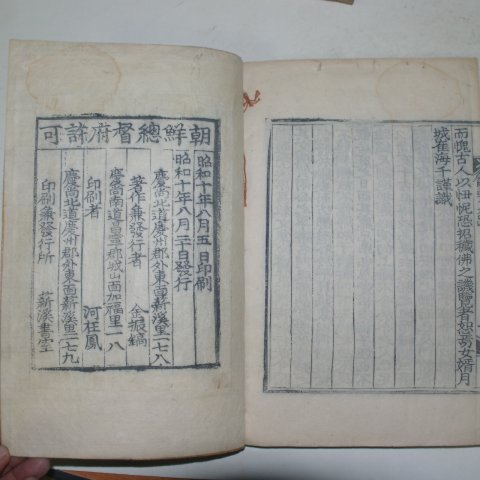 而愧古人以忸怩恐招穢佛之譏覽者恕焉女婿月
城崔海千謹識
朝鮮總督府許可
昭和十年八月五日印刷
昭和十年八月二十日發行
慶尙北道慶州郡外東面薪溪里一七八
著作兼發行者 金振縞
慶尙南道昌寧郡城山面加福里一八
印刷者 河在鳳
慶尙北道慶州郡外東面薪溪里一七九
印刷兼發行所 薪溪書堂